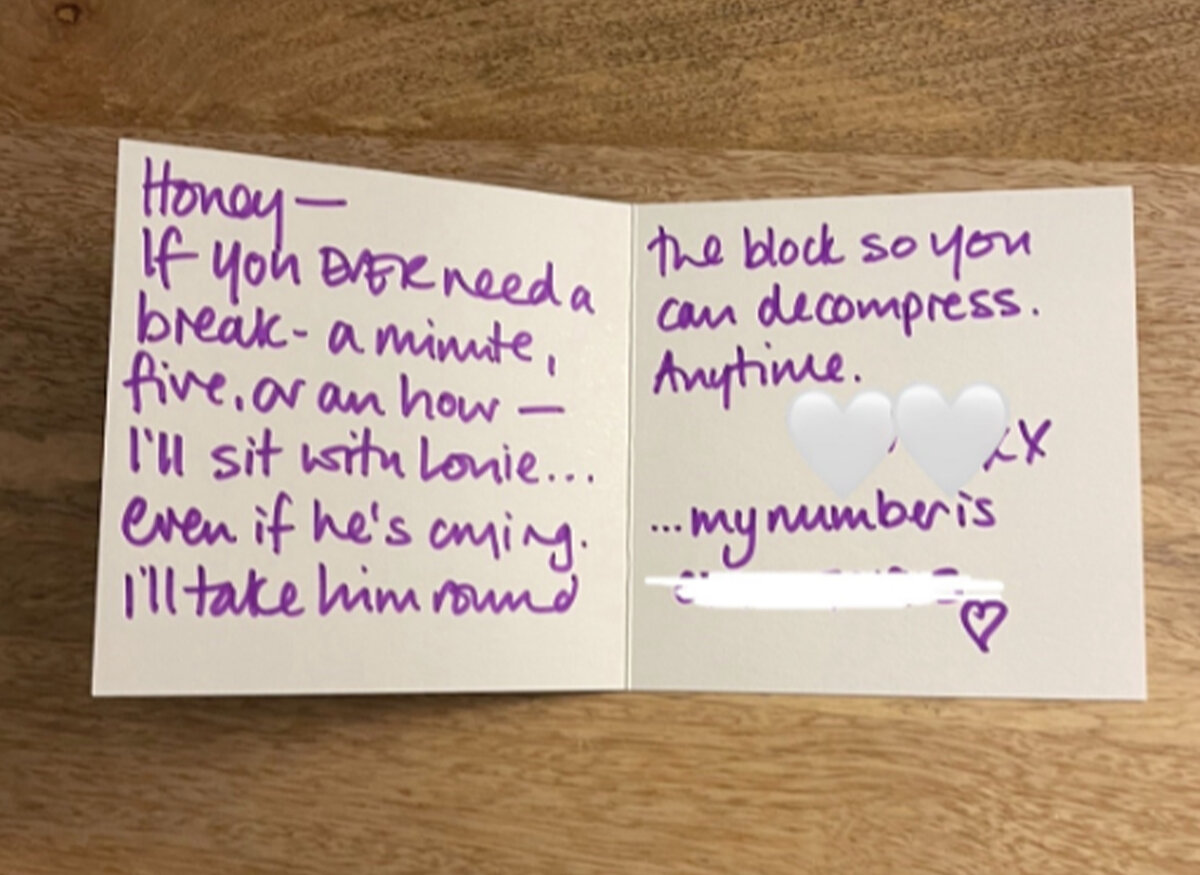 Honey —
If you EVER need a
break - a minute,
five, or an hour —
I'll sit with Lonie...
even if he's crying.
I'll take him round
the block so you
can decompress.
Anytime.
xx
...my number is